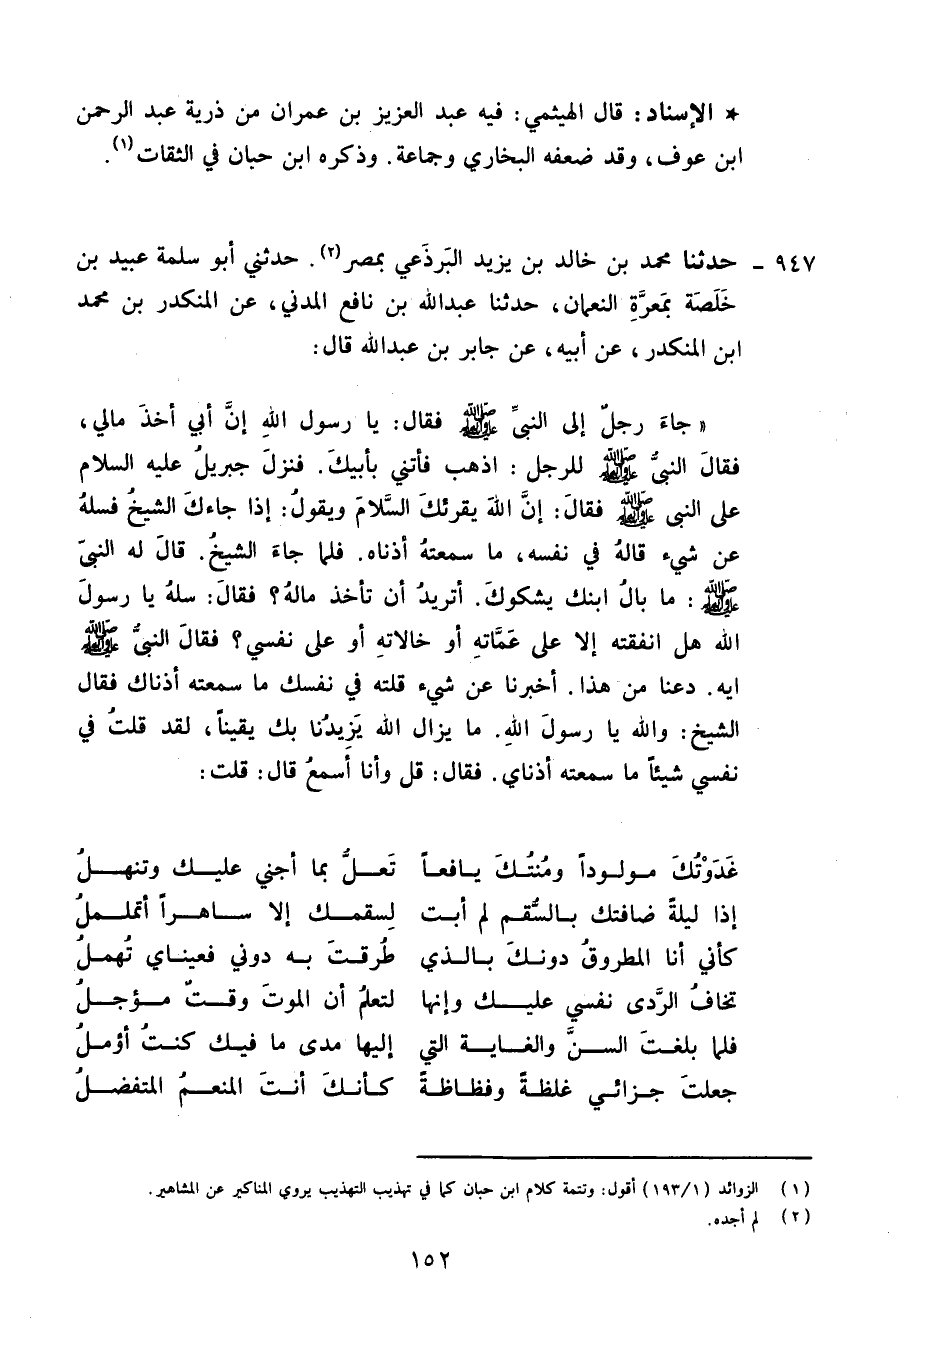 ★ الإسناد: قال الهيثمي: فيه عبد العزيز بن عمران من ذرية عبد الرحمن
ابن عوف، وقد ضعفه البخاري وجماعة. وذكره ابن حبان في الثقات(١).
٩٤٧ - حدثنا محمد بن خالد بن يزيد البَرذَعي بمصر(٢). حدثني أبو سلمة عبيد بن
خَلَصَة بمَعرَّةِ النعمان، حدثنا عبدالله بن نافع المدني، عن المنكدر بن محمد
ابن المنكدر، عن أبيه، عن جابر بن عبدالله قال:
« جاءَ رجلٌ إلى النبيِّ ﷺ فقال: يا رسول اللهِ إنَّ أبي أخذَ مالي،
فقالَ النبيُّ ﷺ للرجل: اذهب فأتني بأبيكَ. فنزلَ جبريلُ عليه السلام
على النبي ﷺ فقالَ: إنَّ اللهَ يقرئكَ السَّلامَ ويقولُ: إذا جاءكَ الشيخُ فسلهُ
عن شيء قالهُ في نفسه، ما سمعتهُ أذناه. فلما جاءَ الشيخُ. قالَ له النبيّ
ﷺ: ما بالُ ابنك يشكوكَ. أتريدُ أن تأخذ مالهُ؟ فقالَ: سلهُ يا رسولَ
الله هل انفقته إلا على عَمَّاتهِ أو خالاتهِ أو على نفسي؟ فقالَ النبيُّ ﷺ
ايه. دعنا من هذا. أخبرنا عن شيء قلته في نفسك ما سمعته أذناك فقال
الشيخ: والله يا رسولَ اللهِ. ما يزال الله يَزِيدُنا بك يقيناً، لقد قلتُ في
نفسي شيئاً ما سمعته أذناي. فقال: قل وأنا أسمعُ قال: قلت:
غَدَوْتُكَ مولوداً ومُنتُكَ يافعاً تَعلُّ بما أجني عليك وتنهلُ
إذا ليلةً ضافتك بالسُّقم لم أبت لسقمك إلا ساهراً أتململُ
كأني أنا المطروقُ دونكَ بالذي طُرقتَ به دوني فعيناي تُهملُ
تخافُ الرَّدى نفسي عليك وإنها لتعلمُ أن الموتَ وقتٌ مؤجلُ
فلما بلغتَ السنَّ والغاية التي إليها مدى ما فيك كنتُ أؤملُ
جعلتَ جزائي غلظةً وفظاظةً كأنكَ أنتَ المنعمُ المتفضلُ
(١) الزوائد (١٩٣/١) أقول: وتتمة كلام ابن حبان كما في تهذيب التهذيب يروي المناكير عن المشاهير.
(٢) لم أجده.
١٥٢